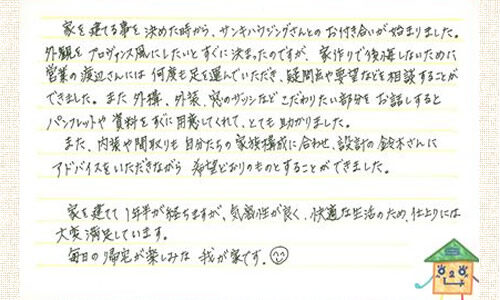 家を建てる事を決めた時から、サンキハウジングさんとのお付き合いが始まりました。
外観をプロヴァンス風にしたいとすぐに決まったのですが、家作りで後悔しないために
営業の渡辺さんには何度も足を運んでいただき、疑問点や要望などを相談することが
できました。また外構、外装、窓のサッシなどこだわりたい部分をお話しすると
パンフレットや資料をすぐに用意してくれて、とても助かりました。
また、内装や間取りも自分たちの家族構成に合わせ、設計の鈴木さんに
アドバイスをいただきながら希望どおりのものとすることができました。
家を建てて1年半が経ちますが、気密性が良く、快適な生活のため、仕上りには
大変満足しています。
毎日の帰宅が楽しみな我が家です。